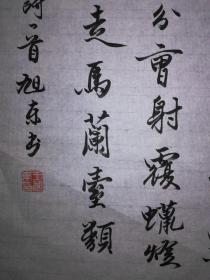 分曹射覆蠟燈
走馬蘭臺類
首旭东书